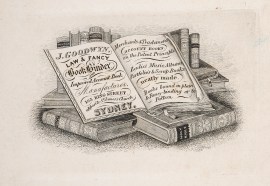 J. GOODWYN,
LAW & FANCY
Book Binder
Improved Account Book
Manufacturer,
KING STREET
SYDNEY.
Merchants & Tradesmens
ACCOUNT BOOKS
on the Patent Principle
Ladies Music, Albums
Portfolios & Scrap Books
neatly made.
Books bound in plain
& fancy binding
Pattern.